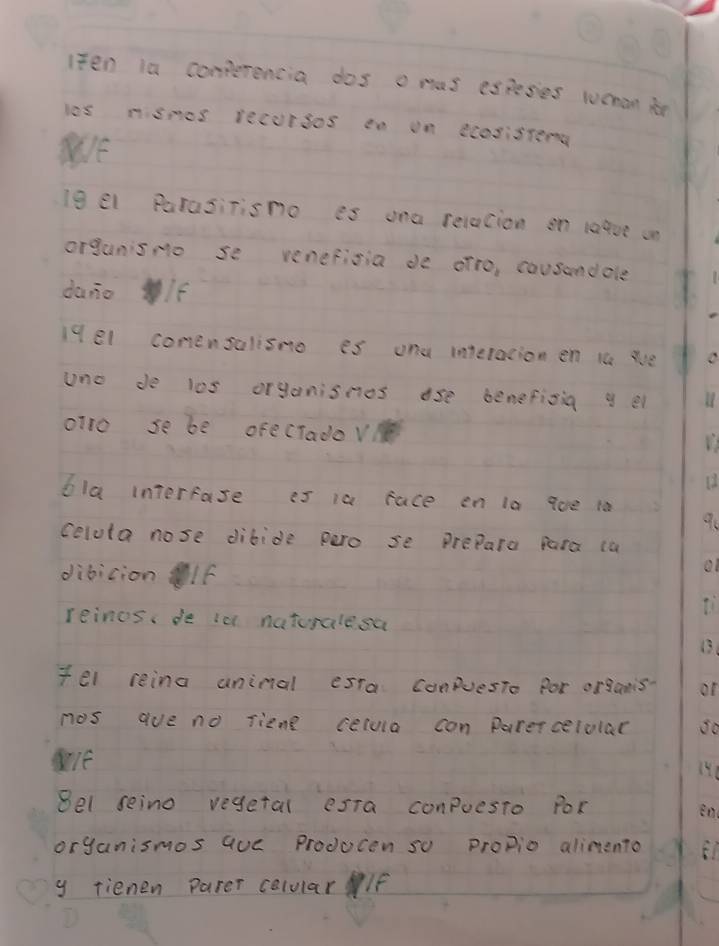 17en la conperencia dos o mas espesies luchan por
los mismos recursos en un ecosistema
V/F
18 el Parasitismo es una relacion en laque un
organismo se venefisia de otro, causandole
daño V/F
19 el comensalismo es una interacion en la que
uno de los organismos dse benefisia y el
otro se be afectado V/F
6la interfase es la face en la que la
celula nose dibide pero se prepara para la
dibicion V/F
reinos. de la naturalesa
7el reina animal esta conpuesto por organis-
mos que no tiene celula con paret celular
V/F
8el seino vegetal esta conpuesto Por
organismos que producen su propio alimento
y tienen paret celular V/F